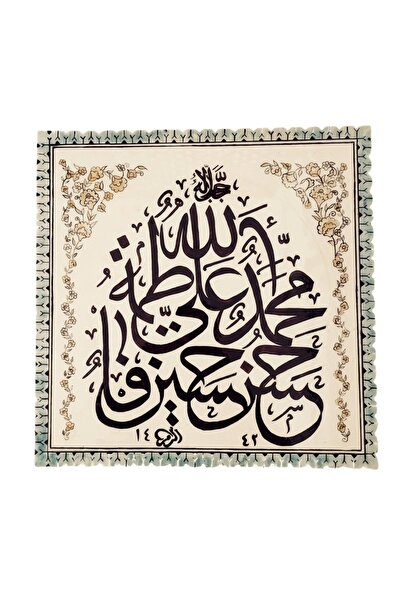 جل جلاله
الله
محمد علي فاطمة
حسن حسين
١٤ ٤٢